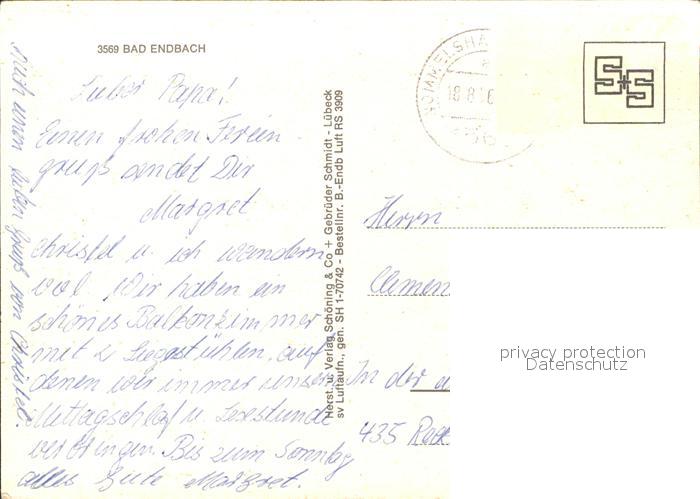 3569 BAD ENDBACH
Lieber Papa!
Einen frohen Ferien-
gruß sendet Dir
Margret
Christel u. ich wandern
viel. Wir haben ein
schönes Balkonzimmer
mit 2 Liegestühlen, auf
denen wir immer unsere
Mittagschlaf u. Lesestunde
verbringen. Bis zum Sonntag
alles Gute Margret.
Auch einen lieben Gruß von Christel.
Herst. u. Verlag Schöning & Co + Gebrüder Schmidt - Lübeck
sv Luftaufn., gen. SH 1-70742 - Bestellnr. B.-Endb Luft RS 3909
S+S
Herrn
Clemen
In der
435
privacy protection
Datenschutz